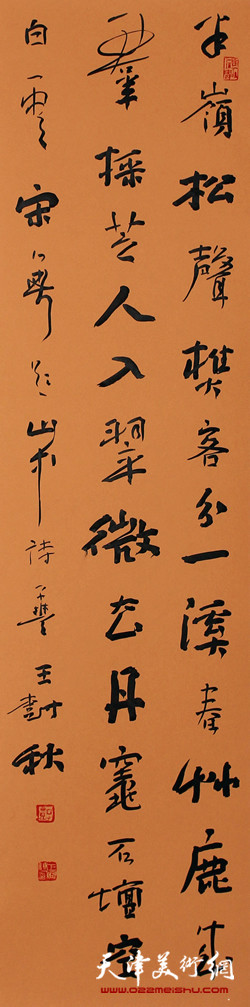 半嶺松聲樵客分一溪春草鹿成
群採芝人入翠微去丹竈石壇空
白雲 宋 山 詩 王樹秋
天津美術網
www.022meishu.com